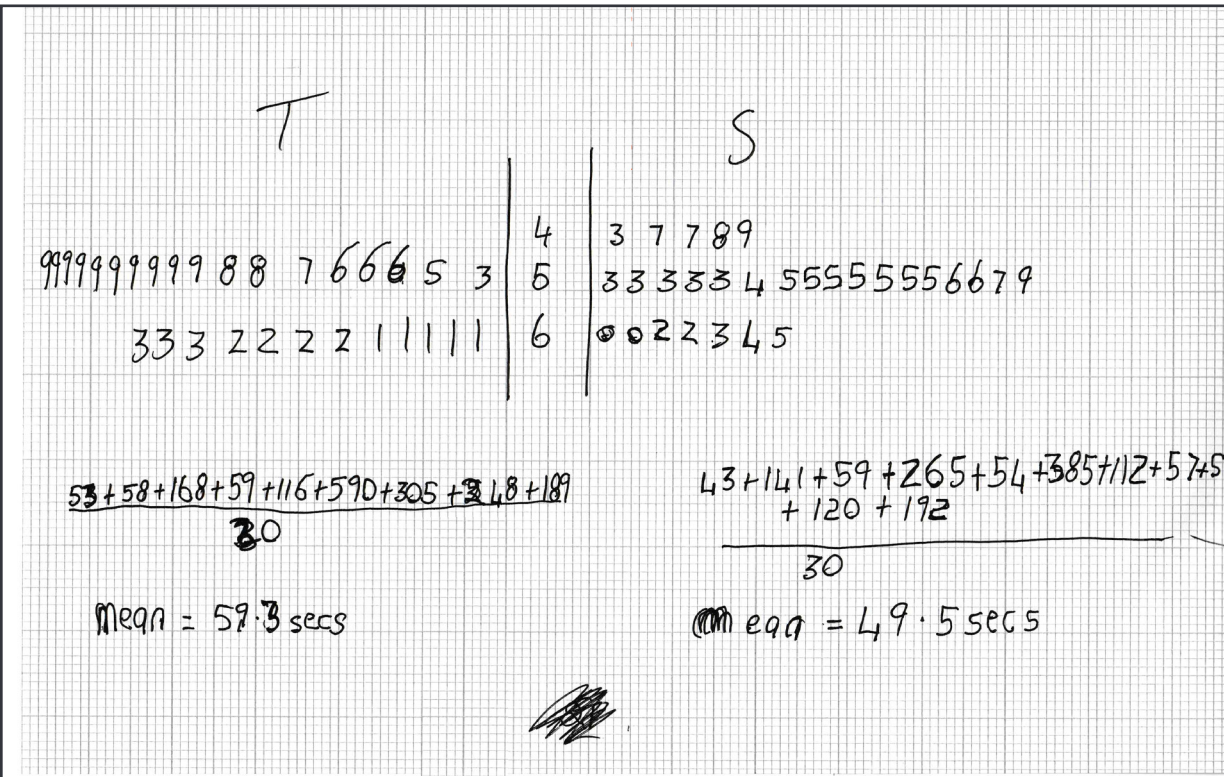 T S
4 3 7 7 8 9
9999999999 8 8 7 6 6 6 5 3 5 3 3 3 3 3 4 5 5 5 5 5 5 5 6 6 7 9
3 3 3 2 2 2 2 1 1 1 1 1 6 0 0 2 2 3 4 5
53+58+168+59+116+590+305+248+189
30
Mean = 59.3 secs
43+141+59+265+54+385+112+57+5
+ 120 + 192
30
Mean = 49.5 secs